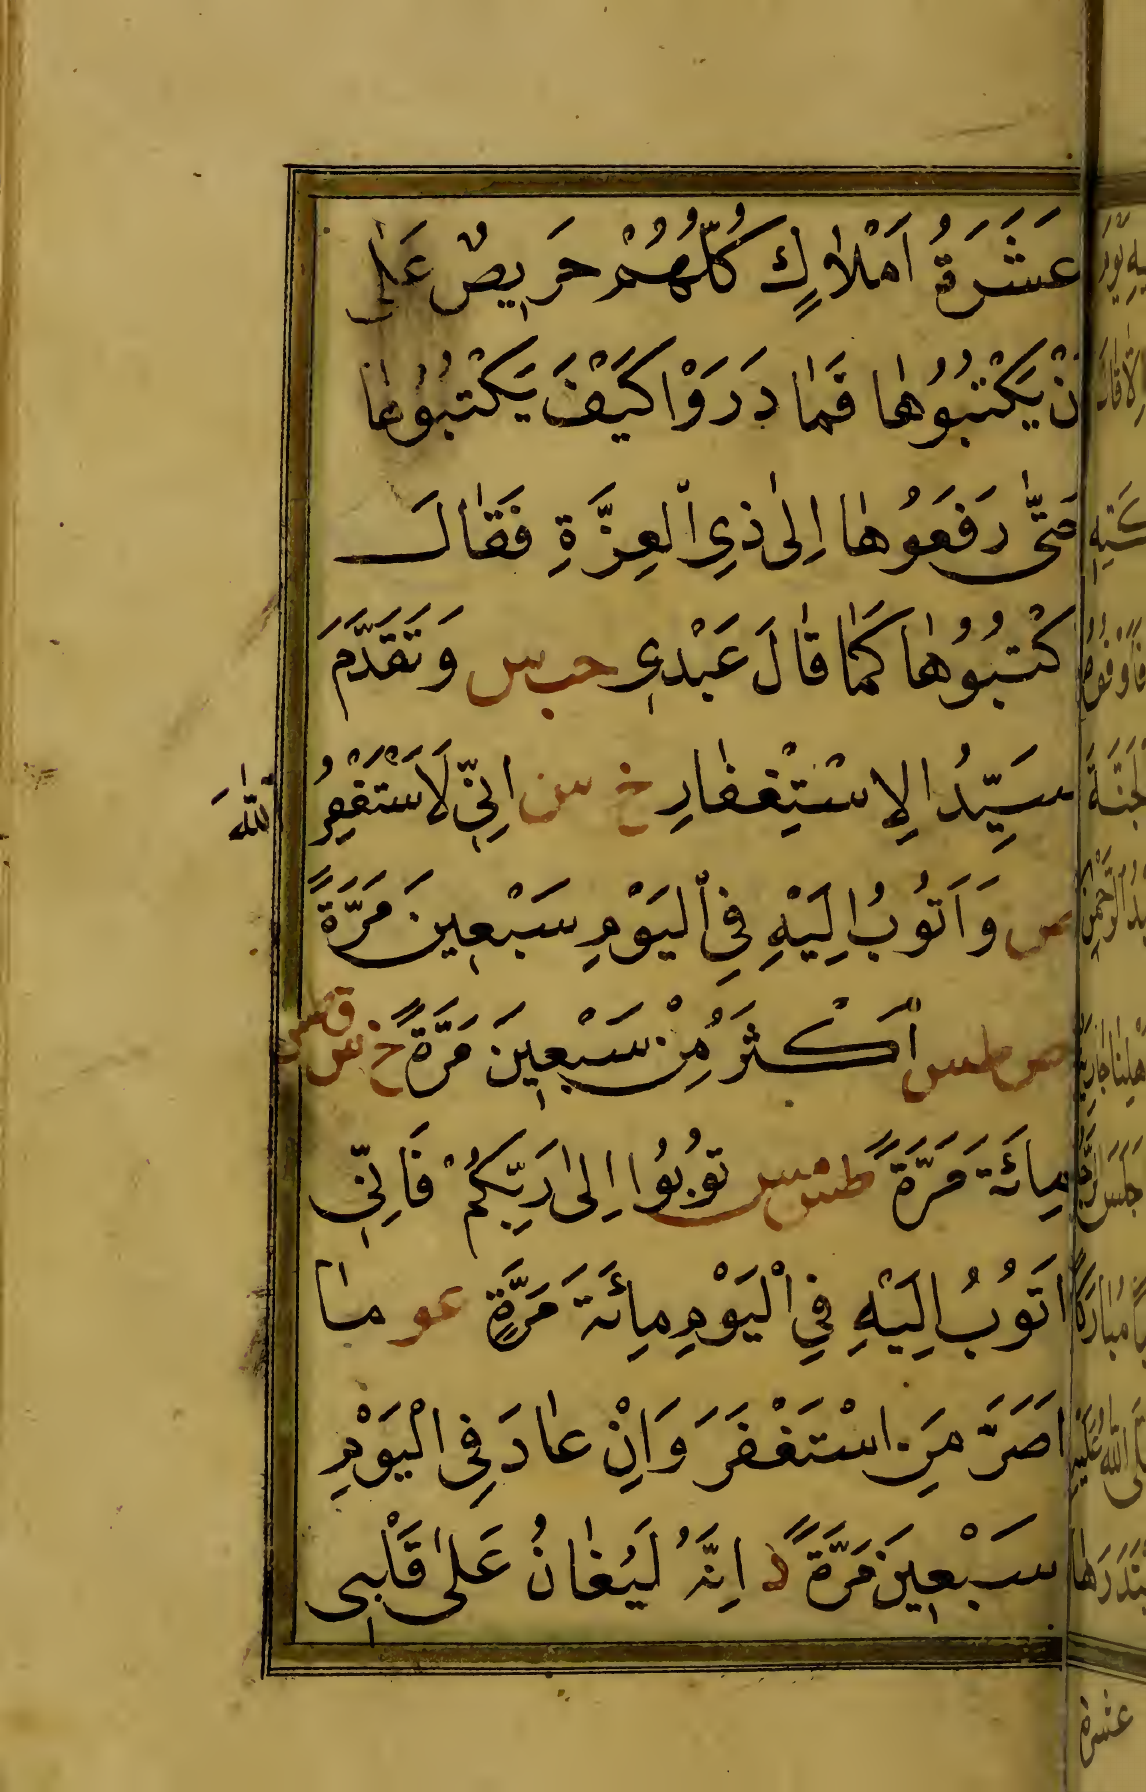 عَشَرَةُ اَمْلَاكٍ كُلُّهُمْ حَرِيصٌ عَلٰى
نْ يَكْتُبُوُهٰا فَمٰا دَرَوْا كَيْفَ يَكْتُبُوُهٰا
حَتّٰى رَفَعُوُهٰا اِلٰى ذِي الْعِزَّةِ فَقٰالَ
كْتُبُوُهٰا كَمٰا قٰالَ عَبْدِي حب س وَتَقَدَّمَ
سَيِّدُ الاِسْتِغْفٰارِ خ س اِنِّي لَاَسْتَغْفِرُ
اللّٰهَ
ص وَاَتُوُبُ اِلَيْهِ فِي الْيَوْمِ سَبْعِينَ مَرَّةً
ص طس اَكْثَرَ مِنْ سَبْعِينَ مَرَّةً خ س ق
مِائَةَ مَرَّةً طس مس تُوُبُوُا اِلٰى رَبِّكُمْ فَاِنِّي
اَتُوُبُ اِلَيْهِ فِي الْيَوْمِ مِائَةَ مَرَّةٍ عو مٰا
اَصَرَّ مَنِ اسْتَغْفَرَ وَاِنْ عٰادَ فِي الْيَوْمِ
سَبْعِينَ مَرَّةً د اِنَّهُ لَيُغٰانُ عَلٰى قَلْبِي
عشرة